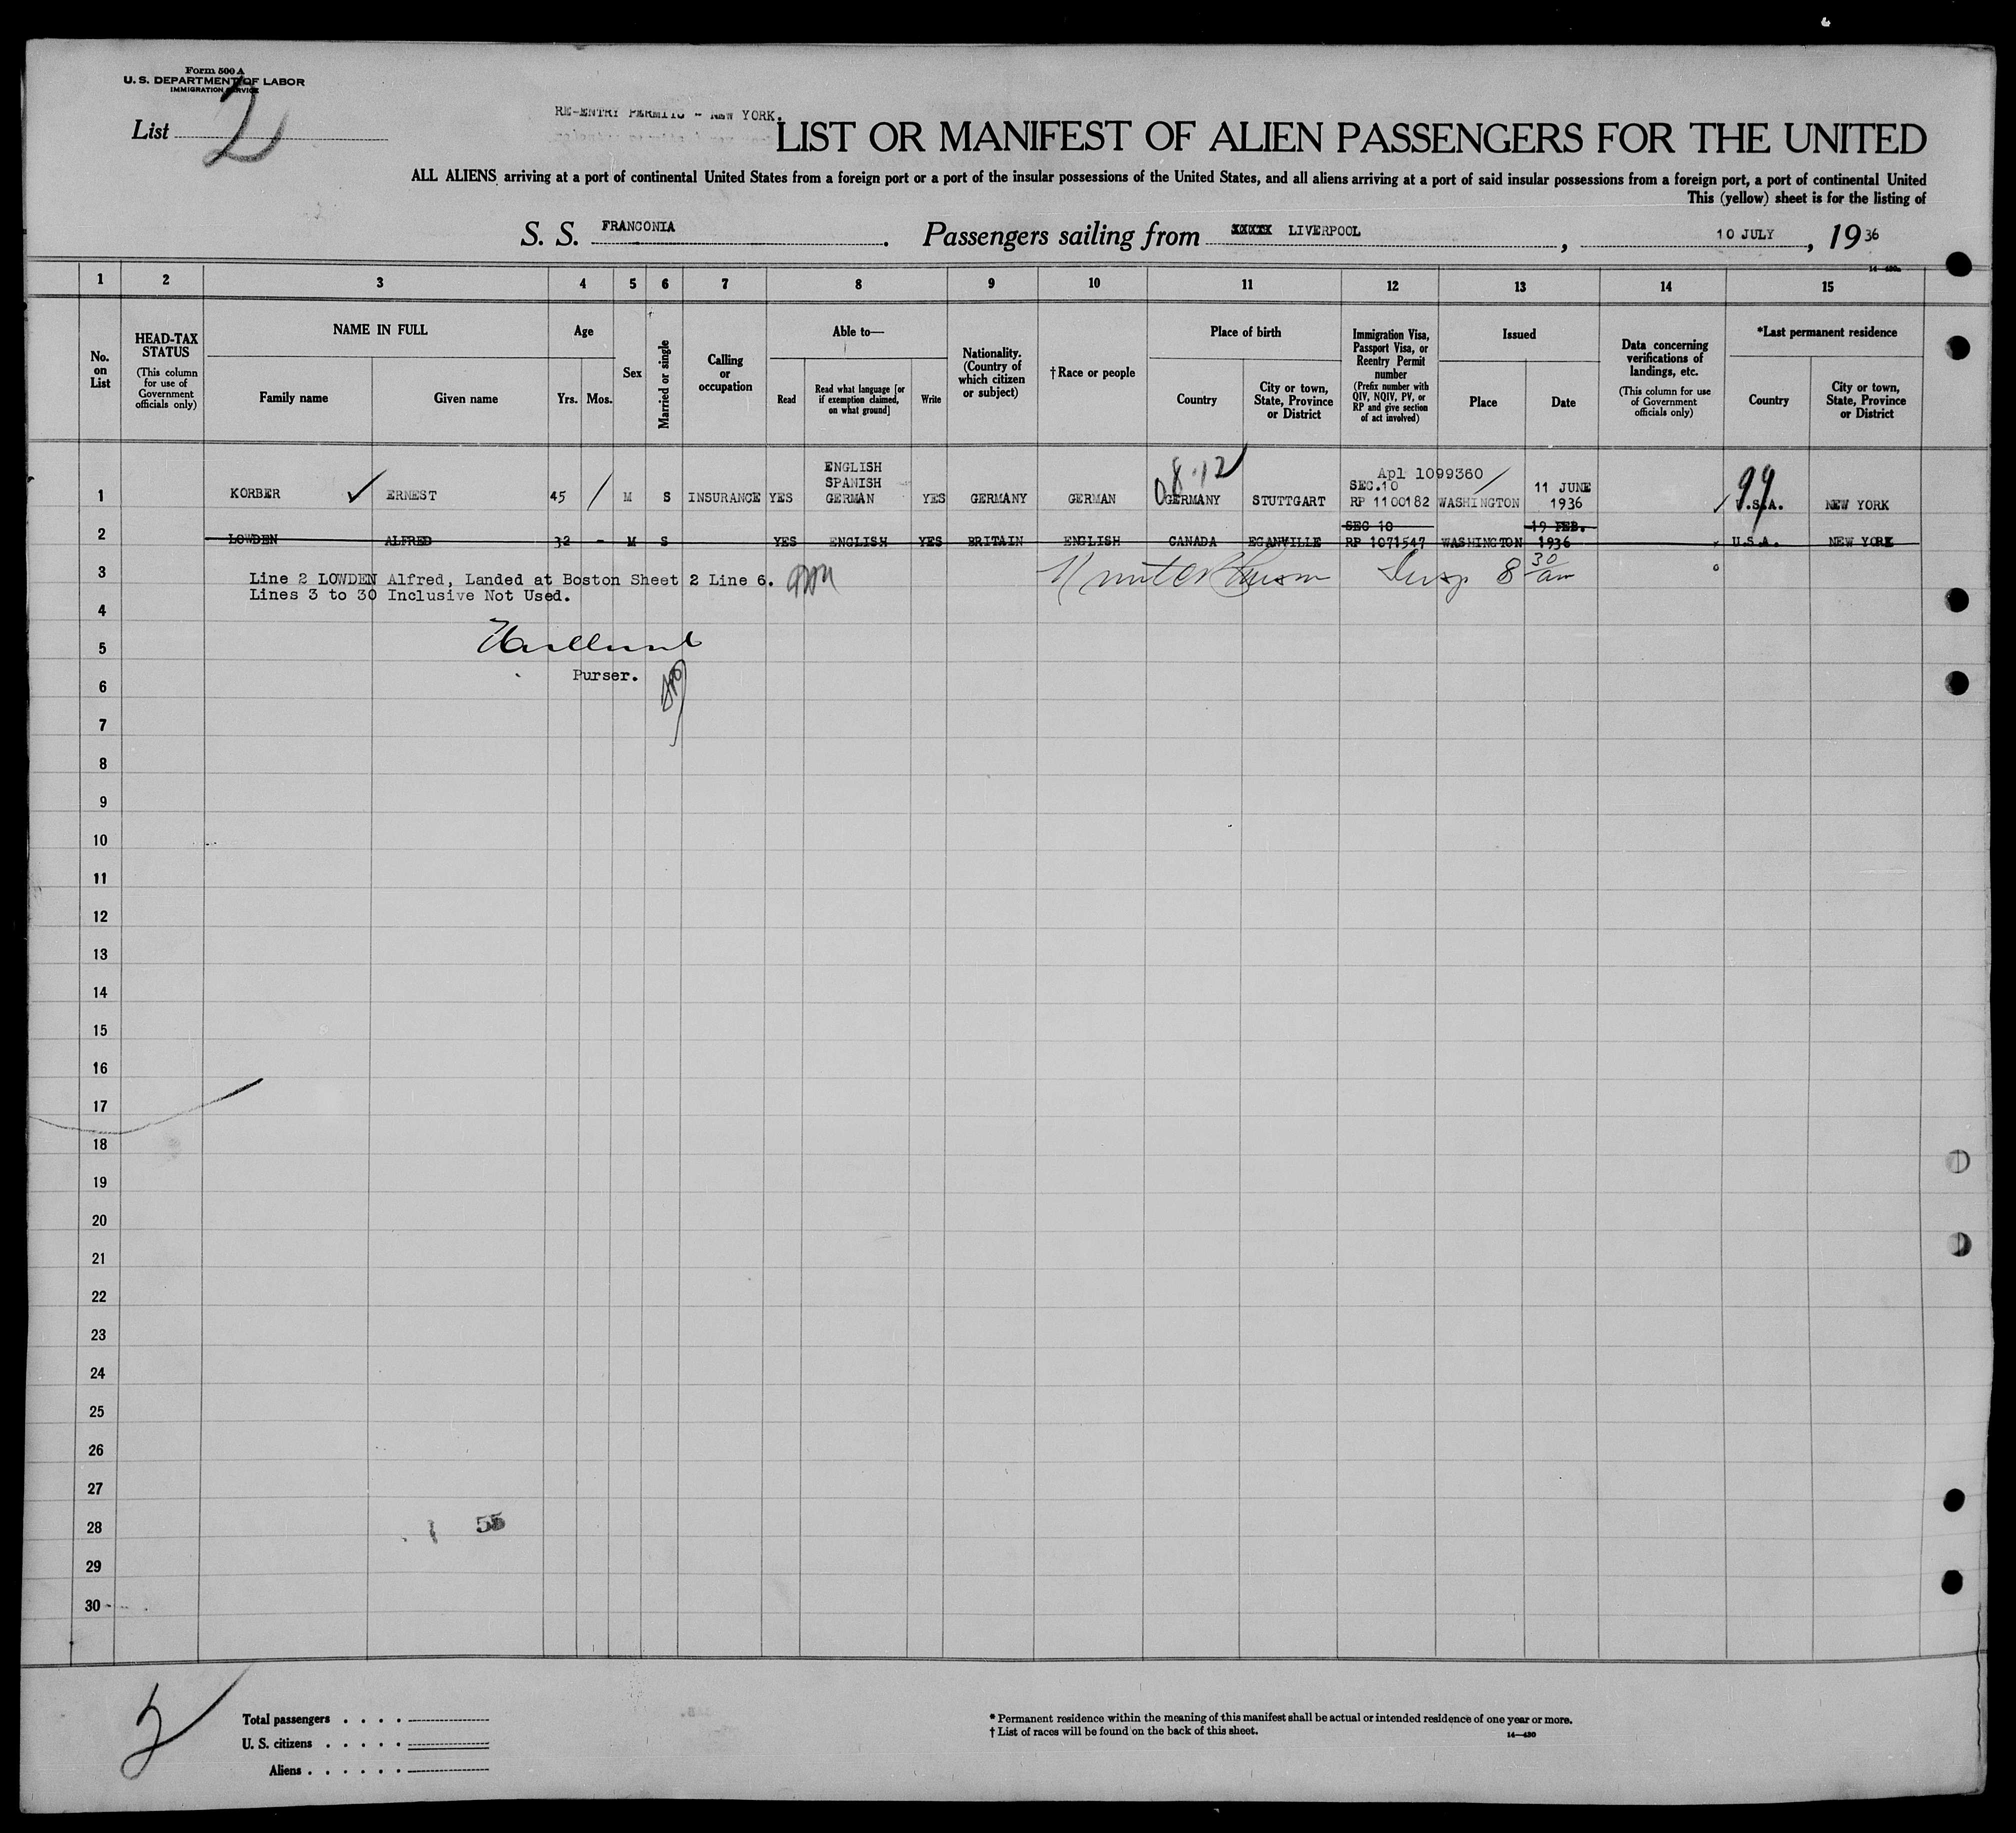 Form 500 A
U. S. DEPARTMENT OF LABOR
IMMIGRATION SERVICE
List 2
RE-ENTRY PERMITS - NEW YORK.
LIST OR MANIFEST OF ALIEN PASSENGERS FOR THE UNITED
ALL ALIENS arriving at a port of continental United States from a foreign port or a port of the insular possessions of the United States, and all aliens arriving at a port of said insular possessions from a foreign port, a port of continental United
This (yellow) sheet is for the listing of
S. S. FRANCONIA. Passengers sailing from XXXXX LIVERPOOL, 10 JULY, 1936
14—430a
1 2 3 4 5 6 7 8 9 10 11 12 13 14 15
No. on List
HEAD-TAX STATUS
(This column for use of Government officials only)
NAME IN FULL
Family name
Given name
Age
Yrs. Mos.
Sex
Married or single
Calling or occupation
Able to—
Read
Read what language [or if exemption claimed, on what ground]
Write
Nationality. (Country of which citizen or subject)
†Race or people
Place of birth
Country
City or town, State, Province or District
Immigration Visa, Passport Visa, or Reentry Permit number
(Prefix number with QIV, NQIV, PV, or RP and give section of act involved)
Issued
Place
Date
Data concerning verifications of landings, etc.
(This column for use of Government officials only)
*Last permanent residence
Country
City or town, State, Province or District
1 KORBER ✓ ERNEST 45 / M S INSURANCE YES ENGLISH SPANISH GERMAN YES GERMANY GERMAN GERMANY STUTTGART Apl 1099360 SEC.10 RP 1100182 WASHINGTON 11 JUNE 1936 99 U.S.A. NEW YORK
2 LOWDEN ALFRED 32 - M S YES ENGLISH YES BRITAIN ENGLISH CANADA EGANVILLE SEC 10 RP 1071547 WASHINGTON 19 FEB. 1936 U.S.A. NEW YORK
3 Line 2 LOWDEN Alfred, Landed at Boston Sheet 2 Line 6. Insp 8 30 am
Lines 3 to 30 Inclusive Not Used.
4
5
Purser.
6
7
8
9
10
11
12
13
14
15
16
17
18
19
20
21
22
23
24
25
26
27
28 55
29
30
2
Total passengers . . . .
U. S. citizens . . . . .
Aliens . . . . . .
* Permanent residence within the meaning of this manifest shall be actual or intended residence of one year or more.
† List of races will be found on the back of this sheet.
14—430